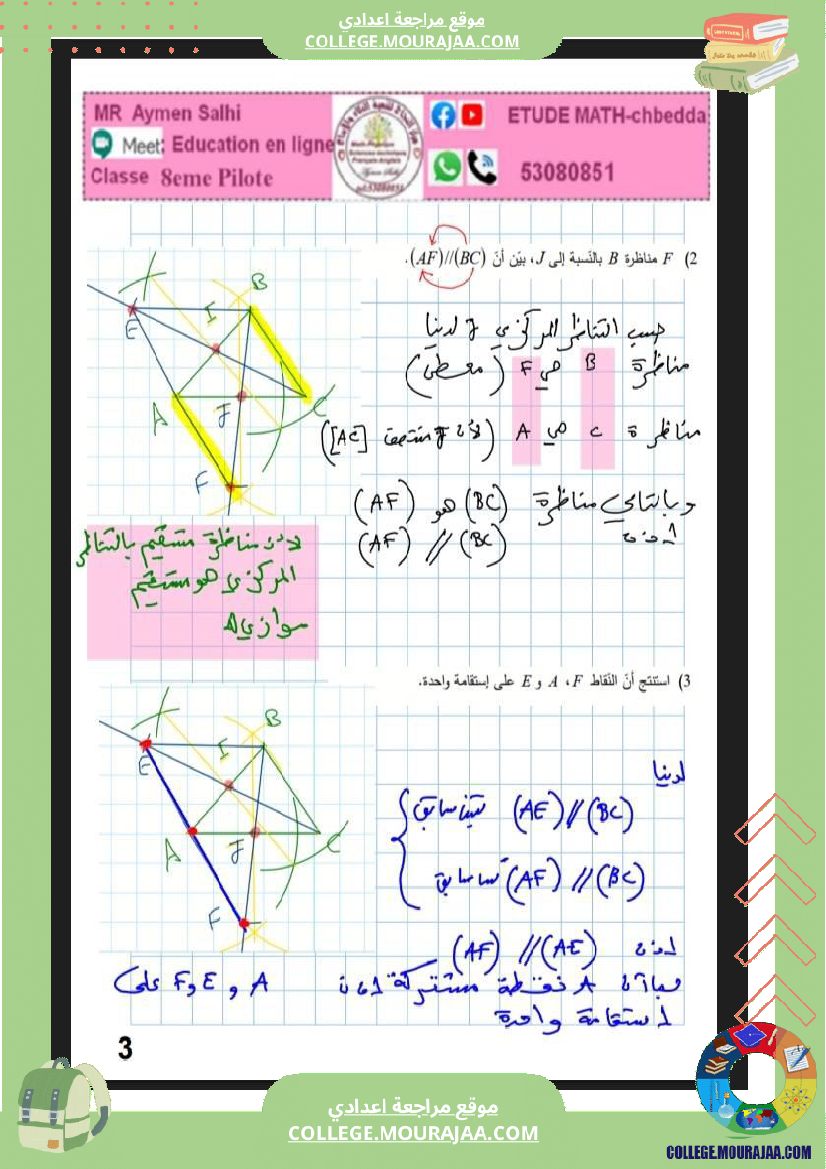 موقع مراجعة اعدادي
COLLEGE.MOURAJAA.COM
MR Aymen Salhi
Meet: Education en ligne
Classe 8eme Pilote
ETUDE MATH-chbedda
53080851
2) F مناظرة B بالنسبة إلى J، بيّن أنّ (AF)//(BC).
حسب التناظر المركزي J لدينا
مناظرة B هي F (معطى)
مناظرة C هي A (لأن J منتصف [AC])
وبالتالي مناظرة (BC) هو (AF)
إذن (AF) // (BC)
لأن مناظرة مستقيم بالتناظر
المركزي هو مستقيم
موازي له
E
I
B
A
J
C
F
3) استنتج أنّ النّقاط F ، A و E على إستقامة واحدة.
لدينا
(AE) // (BC) بيّنا سابق
(AF) // (BC) سابق
إذن (AF) // (AE)
بما أن A نقطة مشتركة إذن A و E و F على
استقامة واحدة
E
I
B
A
J
C
F
3
موقع مراجعة اعدادي
COLLEGE.MOURAJAA.COM
COLLEGE.MOURAJAA.COM